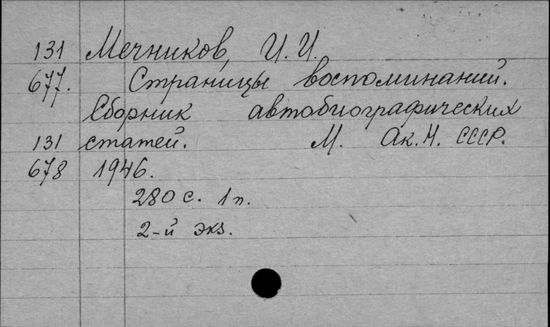 131 Мечников, И.И.
677. Страницы воспоминаний.
Сборник автобиографических
131 статей. М. Ак.Н. СССР.
678 1946.
280 с. 1 п.
2-й экз.